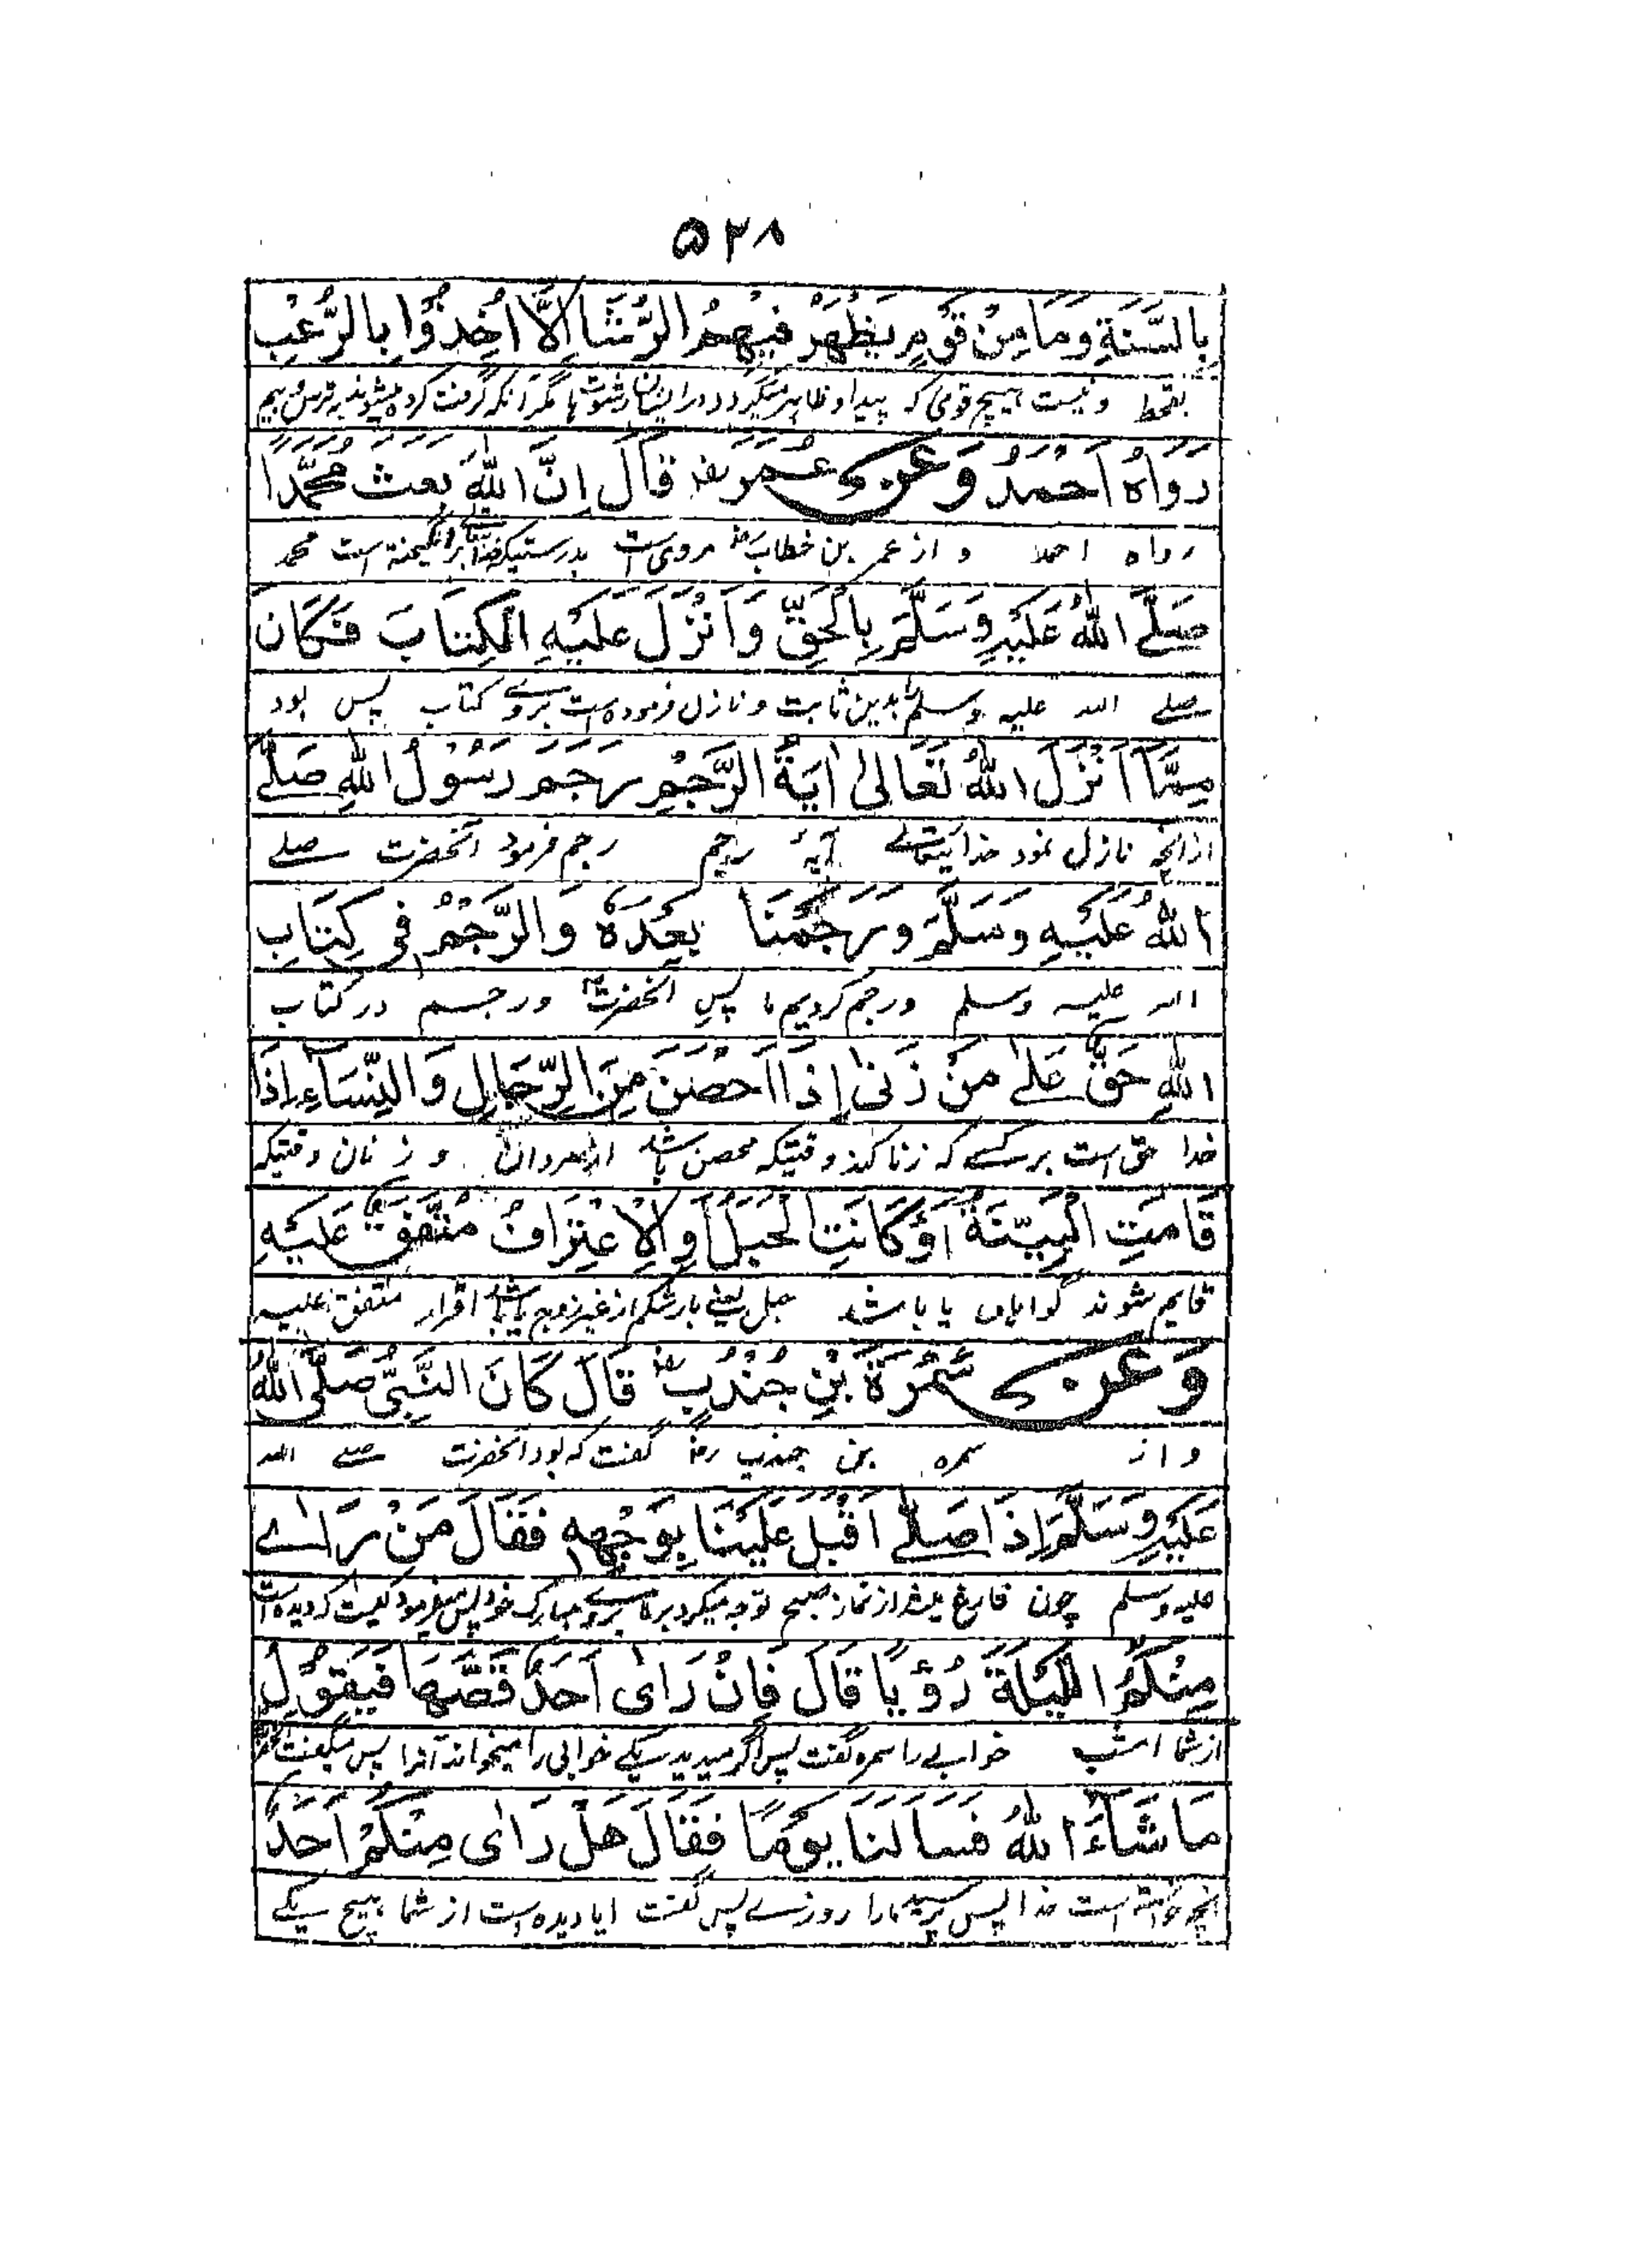 ۵۲۸
بِالسَّنَةِ وَمَا مِنْ قَوْمٍ يَظْهَرُ فِيْهِمُ الرُّشَا اِلَّا اُخِذُوْا بِالرُّعْبِ
بقحط و نیست هیچ قومی که پیدا و ظاهر میگردد در ایشان رشوتها مگر آنکه گرفت کرده میشوند بترس و بیم
رَوَاهُ اَحْمَدُ وَعَنْ عُمَرَ رض قَالَ اِنَّ اللّٰهَ بَعَثَ مُحَمَّدًا
رواه احمد و از عمر بن خطاب رض مروی است بدرستیکه خدایتعالے برانگیخته است محمد
صَلَّے اللّٰهُ عَلَيْهِ وَسَلَّمَ بِالْحَقِّ وَاَنْزَلَ عَلَيْهِ الْكِتَابَ فَكَانَ
صلے الله علیه وسلم را بدین ثابت و نازل فرموده است بروے کتاب پس بود
مِمَّا اَنْزَلَ اللّٰهُ تَعَالٰى اٰيَةُ الرَّجْمِ رَجَمَ رَسُوْلُ اللّٰهِ صَلَّے
ازانچه نازل نمود خدایتعالے آیهٔ رجم رجم فرمود آنحضرت صلے
اللّٰهُ عَلَيْهِ وَسَلَّمَ وَرَجَمْنَا بَعْدَهٗ وَالرَّجْمُ فِي كِتَابِ
الله علیه وسلم و رجم کردیم ما پس آنحضرت و رجم در کتاب
اللّٰهِ حَقٌّ عَلٰے مَنْ زَنٰى اِذَا اَحْصَنَ مِنَ الرِّجَالِ وَالنِّسَآءِ اِذَا
خدا حق است بر کسے که زنا کند وقتیکه محصن باشد از مردان و زنان وقتیکه
قَامَتِ الْبَيِّنَةُ اَوْ كَانَتِ الْحَبَلُ اَوِ الْاِعْتِرَافُ مُتَّفَقٌ عَلَيْهِ
قایم شوند گواهان یا باشد حبل یعنے بار شکم از غیر زوج یا باشد اقرار متفق علیه
وَعَنْ سَمُرَةَ بْنِ جُنْدُبٍ رض قَالَ كَانَ النَّبِيُّ صَلَّى اللّٰهُ
و از سمره بن جندب رض گفت که بود آنحضرت صلے الله
عَلَيْهِ وَسَلَّمَ اِذَا صَلّٰے اَقْبَلَ عَلَيْنَا بِوَجْهِهٖ فَقَالَ مَنْ رَاٰے
علیه وسلم چون فارغ میشد از نماز صبح توجه میکرد بر ما بروے مبارک خود پس میفرمود کیست که دیده است
مِنْكُمُ اللَّيْلَةَ رُؤْيًا قَالَ فَاِنْ رَاٰى اَحَدٌ قَصَّهَا فَيَقُوْلُ
از شما امشب خوابے را سمره گفت پس اگر میدید یکے خوابی را میخواند آنرا پس میگفت
مَا شَآءَ اللّٰهُ فَسَاَلَنَا يَوْمًا فَقَالَ هَلْ رَاٰى مِنْكُمْ اَحَدٌ
آنچه خواسته است خدا پس پرسید مارا روزے پس گفت آیا دیده است از شما هیچ یکے